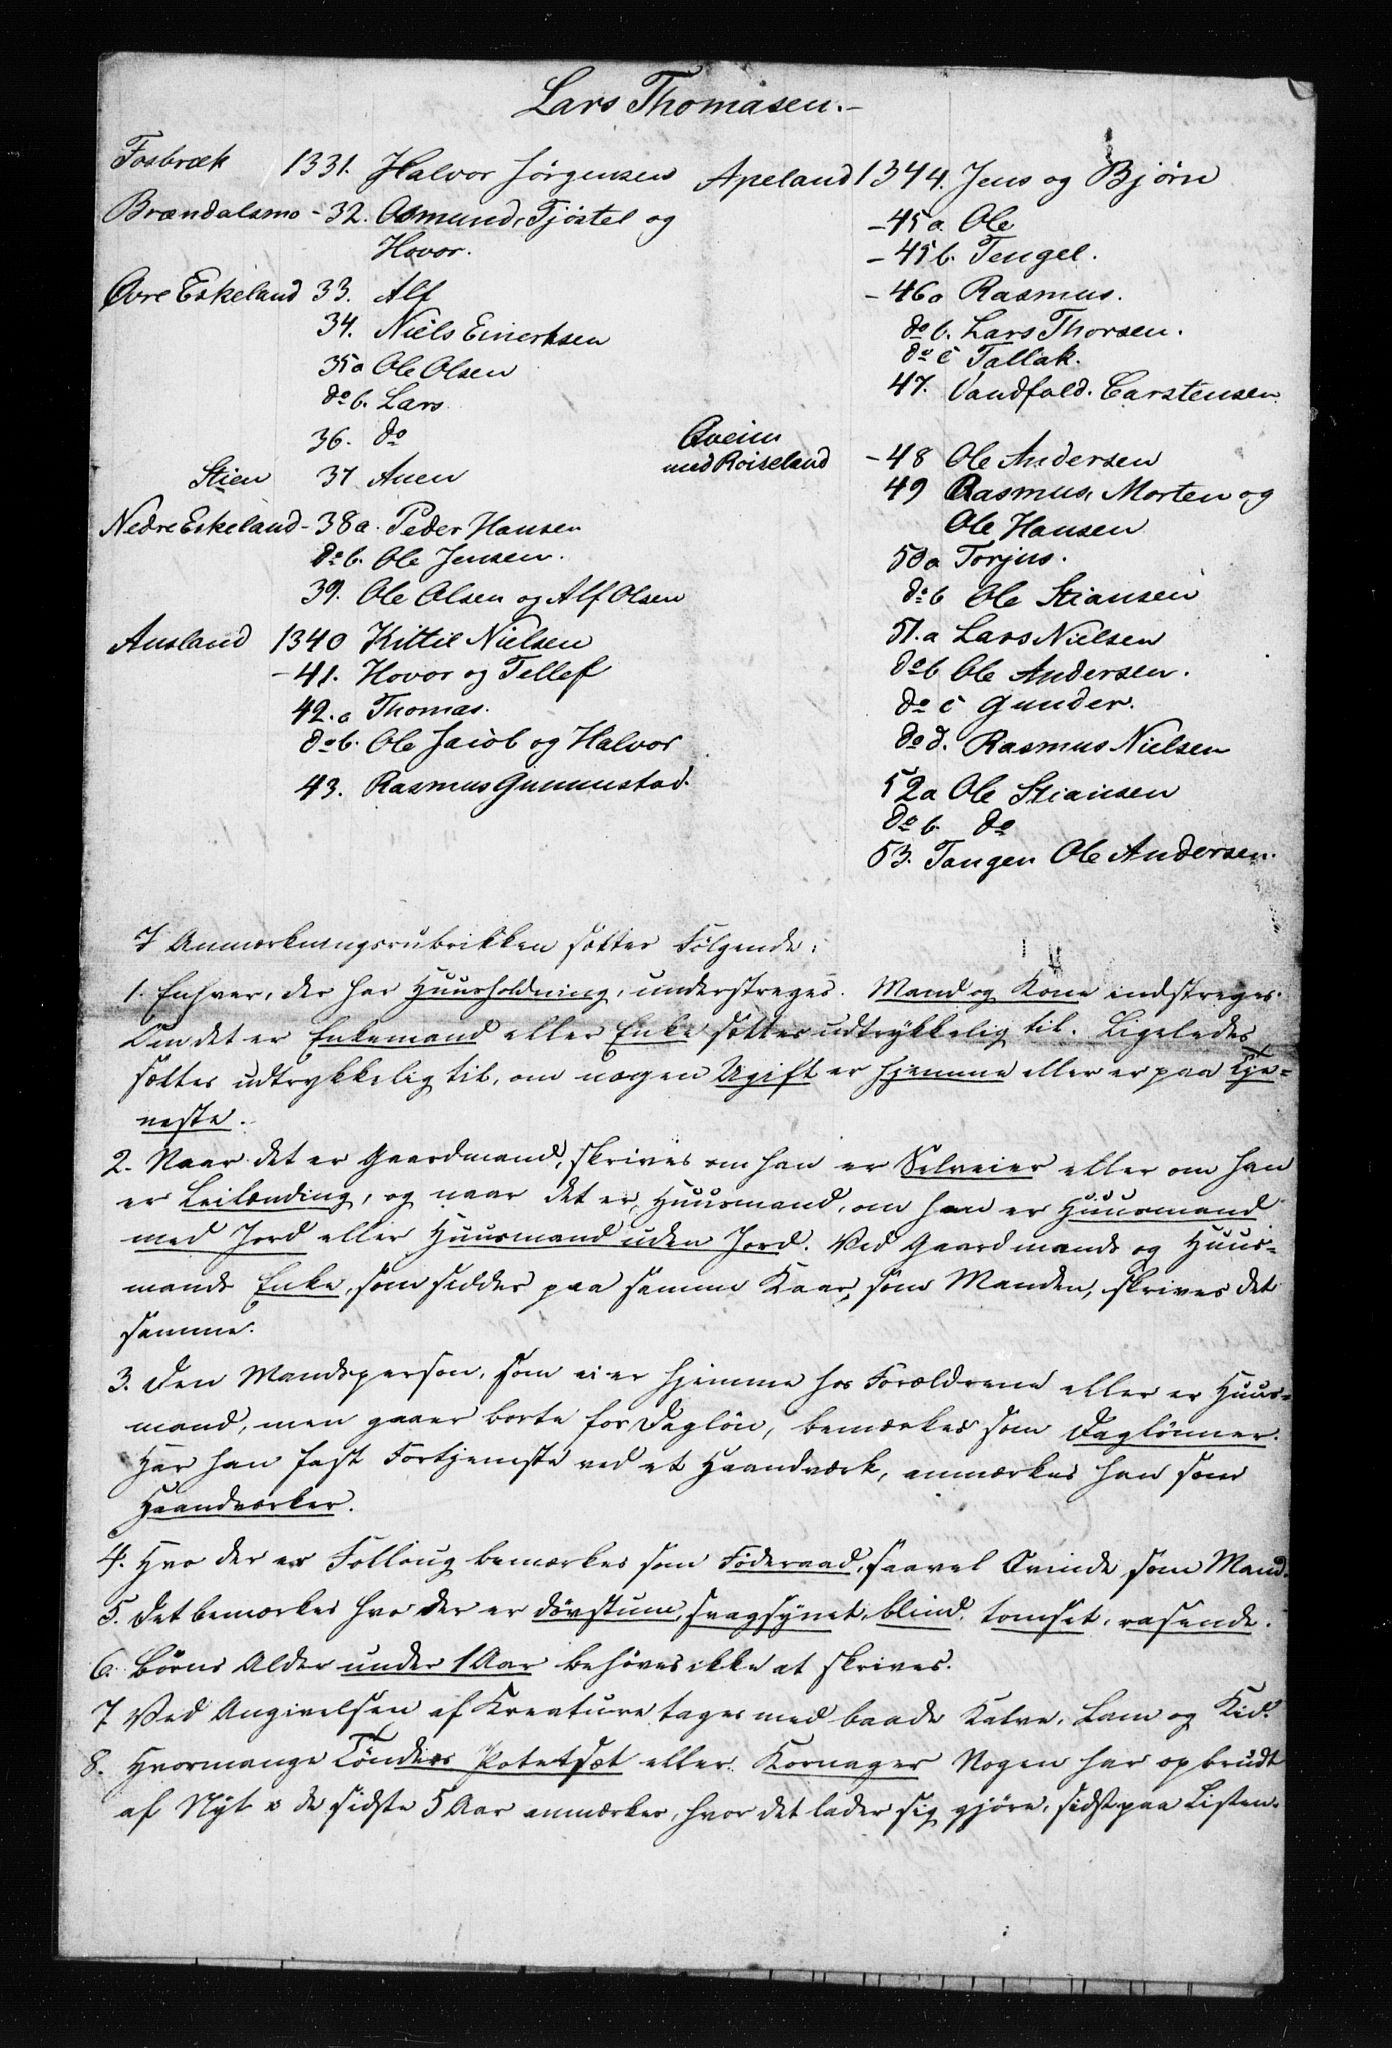 Lars Thomasen.-
Fosbræk 1331. Halvor Jörgensen
Brændalsmo - 32. Osmund, Tjöstel og
Hovor.
Övre Eskeland 33. Alf
34. Niels Einertsen
35a Ole Olsen
do b. Lars
36. do
Stien 37 Auen
Nedre Eskeland - 38a. Peder Hansen
do b. Ole Jensen.
39. Ole Olsen og Alf Olsen
Ausland 1340 Kittil Nielsen
- 41. Hovor og Tellef
42. a Thomas.
do b. Ole Jacob og Halvor
43. Rasmus Gunnustad.
Apeland 1344. Jens og Björn
- 45a. Ole
- 45b. Tengel.
- 46a Rasmus.
do b. Lars Thorsen.
do c Tallak.
47. Vandfald. Carstensen
Qveim
med Roiseland - 48 Ole Andersen
49 Rasmus, Morten og
Ole Hansen
50a Torjus.
do b Ole Stiansen
51. a Lars Nielsen
do b Ole Andersen.
do c Gunder.
do d. Rasmus Nielsen
52a Ole Stiansen
do b. do
53. Tangen Ole Andersen.
I Anmærkningsrubrikken sættes Følgende:
1. Enhver, der har Huusholdning, understreges. Mand og Kone indstreges.
Om det er Enkemand eller Enke sættes udtrykkelig til. Ligeledes
sættes udtrykkelig til, om nogen Ugift er hjemme eller er paa Tje-
neste.
2. Naar det er Gaardmand, skrives om han er Selveier eller om han
er Leilænding, og naar det er Huusmand, om han er Huusmand
med Jord eller Huusmand uden Jord. Ved Gaardmands og Huus-
mands Enke, som sidder paa samme Kaar, som Manden, skrives det
samme.
3. Den Mandsperson, som ei er hjemme hos Forældrene eller er Huus-
mand, men gaaer borte for Daglön, bemærkes som Daglönner.
Har han fast Fortjeneste ved et Haandværk, anmærkes han som
Haandværker.
4. Hvo der er Follaug bemærkes som Föderaad, saavel Qvinde som Mand.
5. Det bemærkes hvo der er dövstum, svagsynet, blind, tomset, rasende.
6. Börns Alder under 1 Aar behöves ikke at skrives.
7. Ved Angivelsen af Kreature tages med baade Kalve, Lam og Kid.
8. Hvormange Tönders Potetsæt eller Kornager Nogen har opbrudt
af Nyt i de sidste 5 Aar anmærkes, hvor det lader sig gjöre, sidst paa Listen.